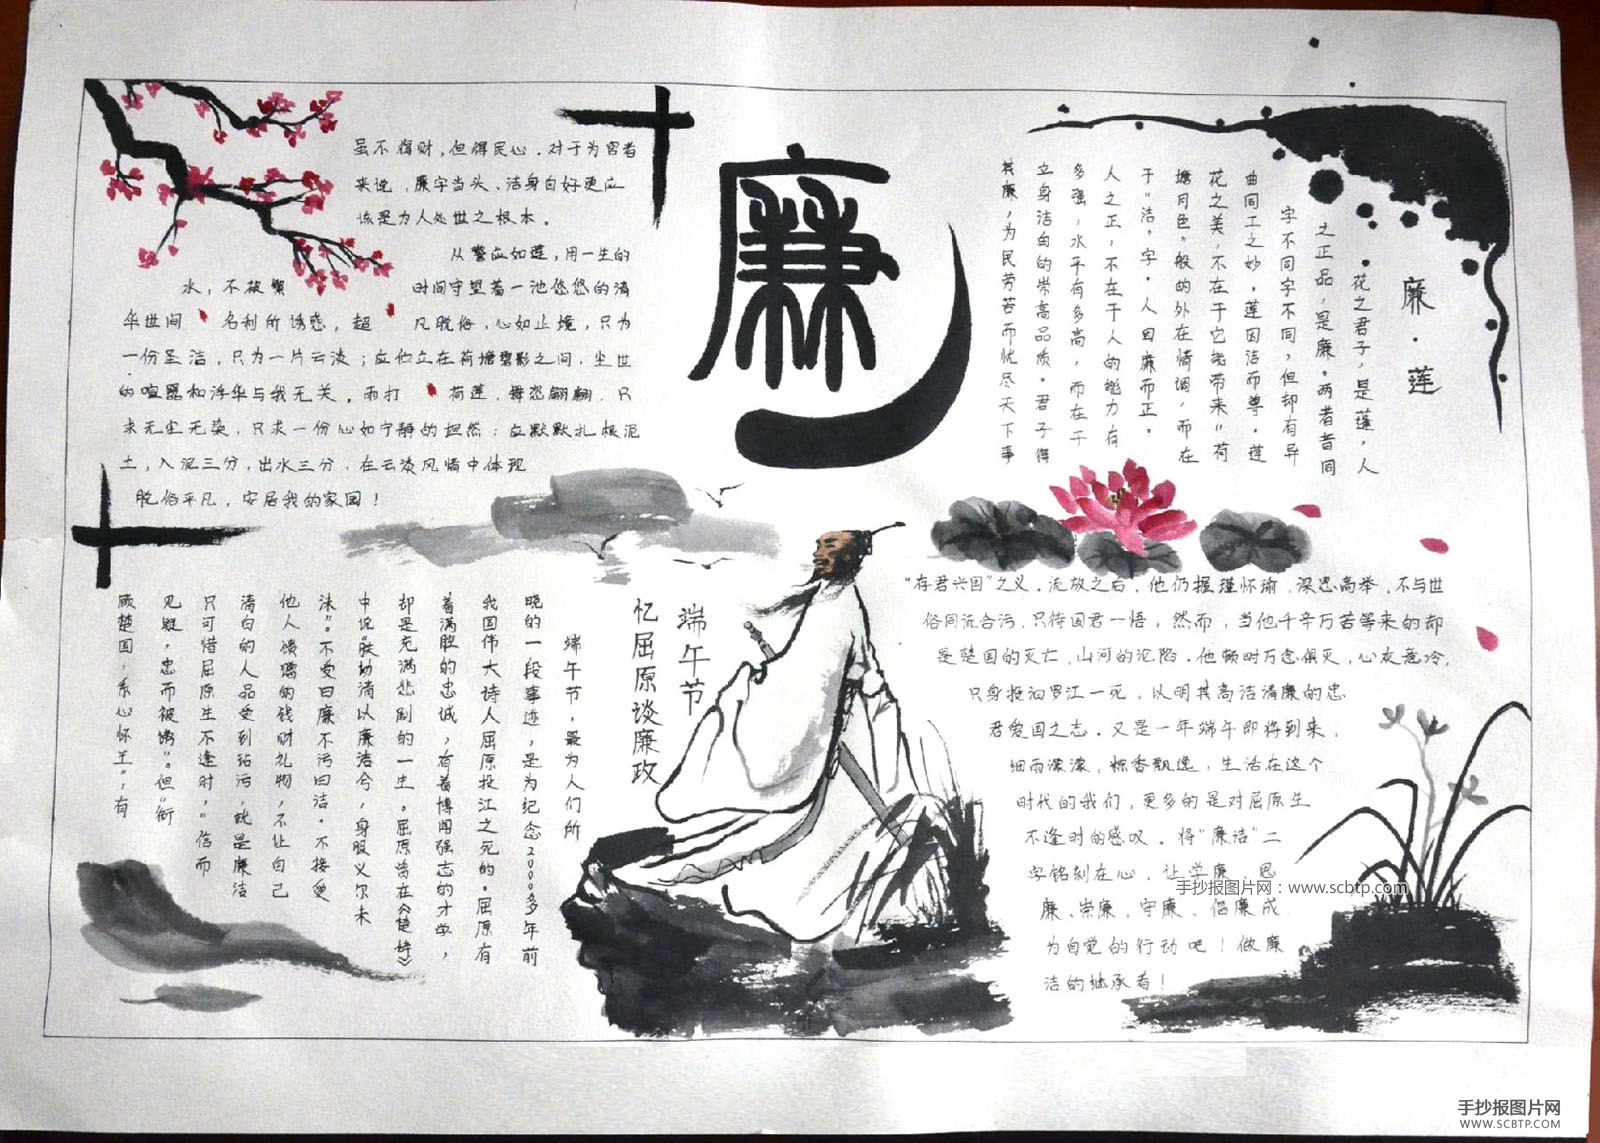 廉
虽不得财，但得民心．对于为官者
来说，廉字当头、洁身自好更应
该是为人处世之根本。
从警应如莲，用一生的
时间守望着一池悠悠的清
水，不被繁
华世间名利所诱惑，超凡脱俗，心如止境，只为
一份圣洁，只为一片云淡；应伫立在荷塘碧影之间．尘世
的喧嚣和浮华与我无关。雨打荷莲，舞恣翩翩，只
求无尘无染，只求一份心如宁静的坦然；应默默扎根泥
土，入泥三分，出水三分，在云淡风情中体现
脱俗平凡，安居我的家园！
廉·莲
花之君子，是莲，人
之正品，是廉。两者皆同
字不同字不同，但却有异
曲同工之妙。莲因洁而尊。莲
花之美，不在于它能带来“荷
塘月色”般的外在情调，而在
于“洁”字。人因廉而正。
人之正，不在于人的能力有
多强，水平有多高，而在于
立身洁白的崇高品质。君子得
其廉，为民劳苦而忧尽天下事
端午节
忆屈原谈廉政
端午节，最为人们所
晓的一段事迹，是为纪念2000多年前
我国伟大诗人屈原投江之死的。屈原有
着满腔的忠诚，有着博闻强志的才学，
却是充满悲剧的一生。屈原曾在《楚辞》
中说“朕幼清以廉洁兮，身服义尔未
沫”。不受曰廉不污曰洁。不接受
他人馈赠的钱财礼物，不让自己
清白的人品受到玷污，就是廉洁
只可惜屈原生不逢时，“信而
见疑，忠而被谤”。但“衔
顾楚国，系心怀王”，有
“存君兴国”之义。流放之后，他仍握瑾怀瑜，深思高举，不与世
俗同流合污，只待国君一悟，然而，当他千辛万苦等来的却
是楚国的灭亡，山河的沦陷。他顿时万念俱灭，心灰意冷，
只身投汩罗江一死，以明其高洁清廉的忠
君爱国之志。又是一年端午即将到来，
细雨濛濛，粽香飘逸，生活在这个
时代的我们，更多的是对屈原生
不逢时的感叹。将“廉洁”二
字铭刻在心，让学廉、思
廉、崇廉、守廉、倡廉成
为自觉的行动吧！做廉
洁的继承者！
手抄报图片网：www.scbtp.com
手抄报图片网
WWW.SCBTP.COM